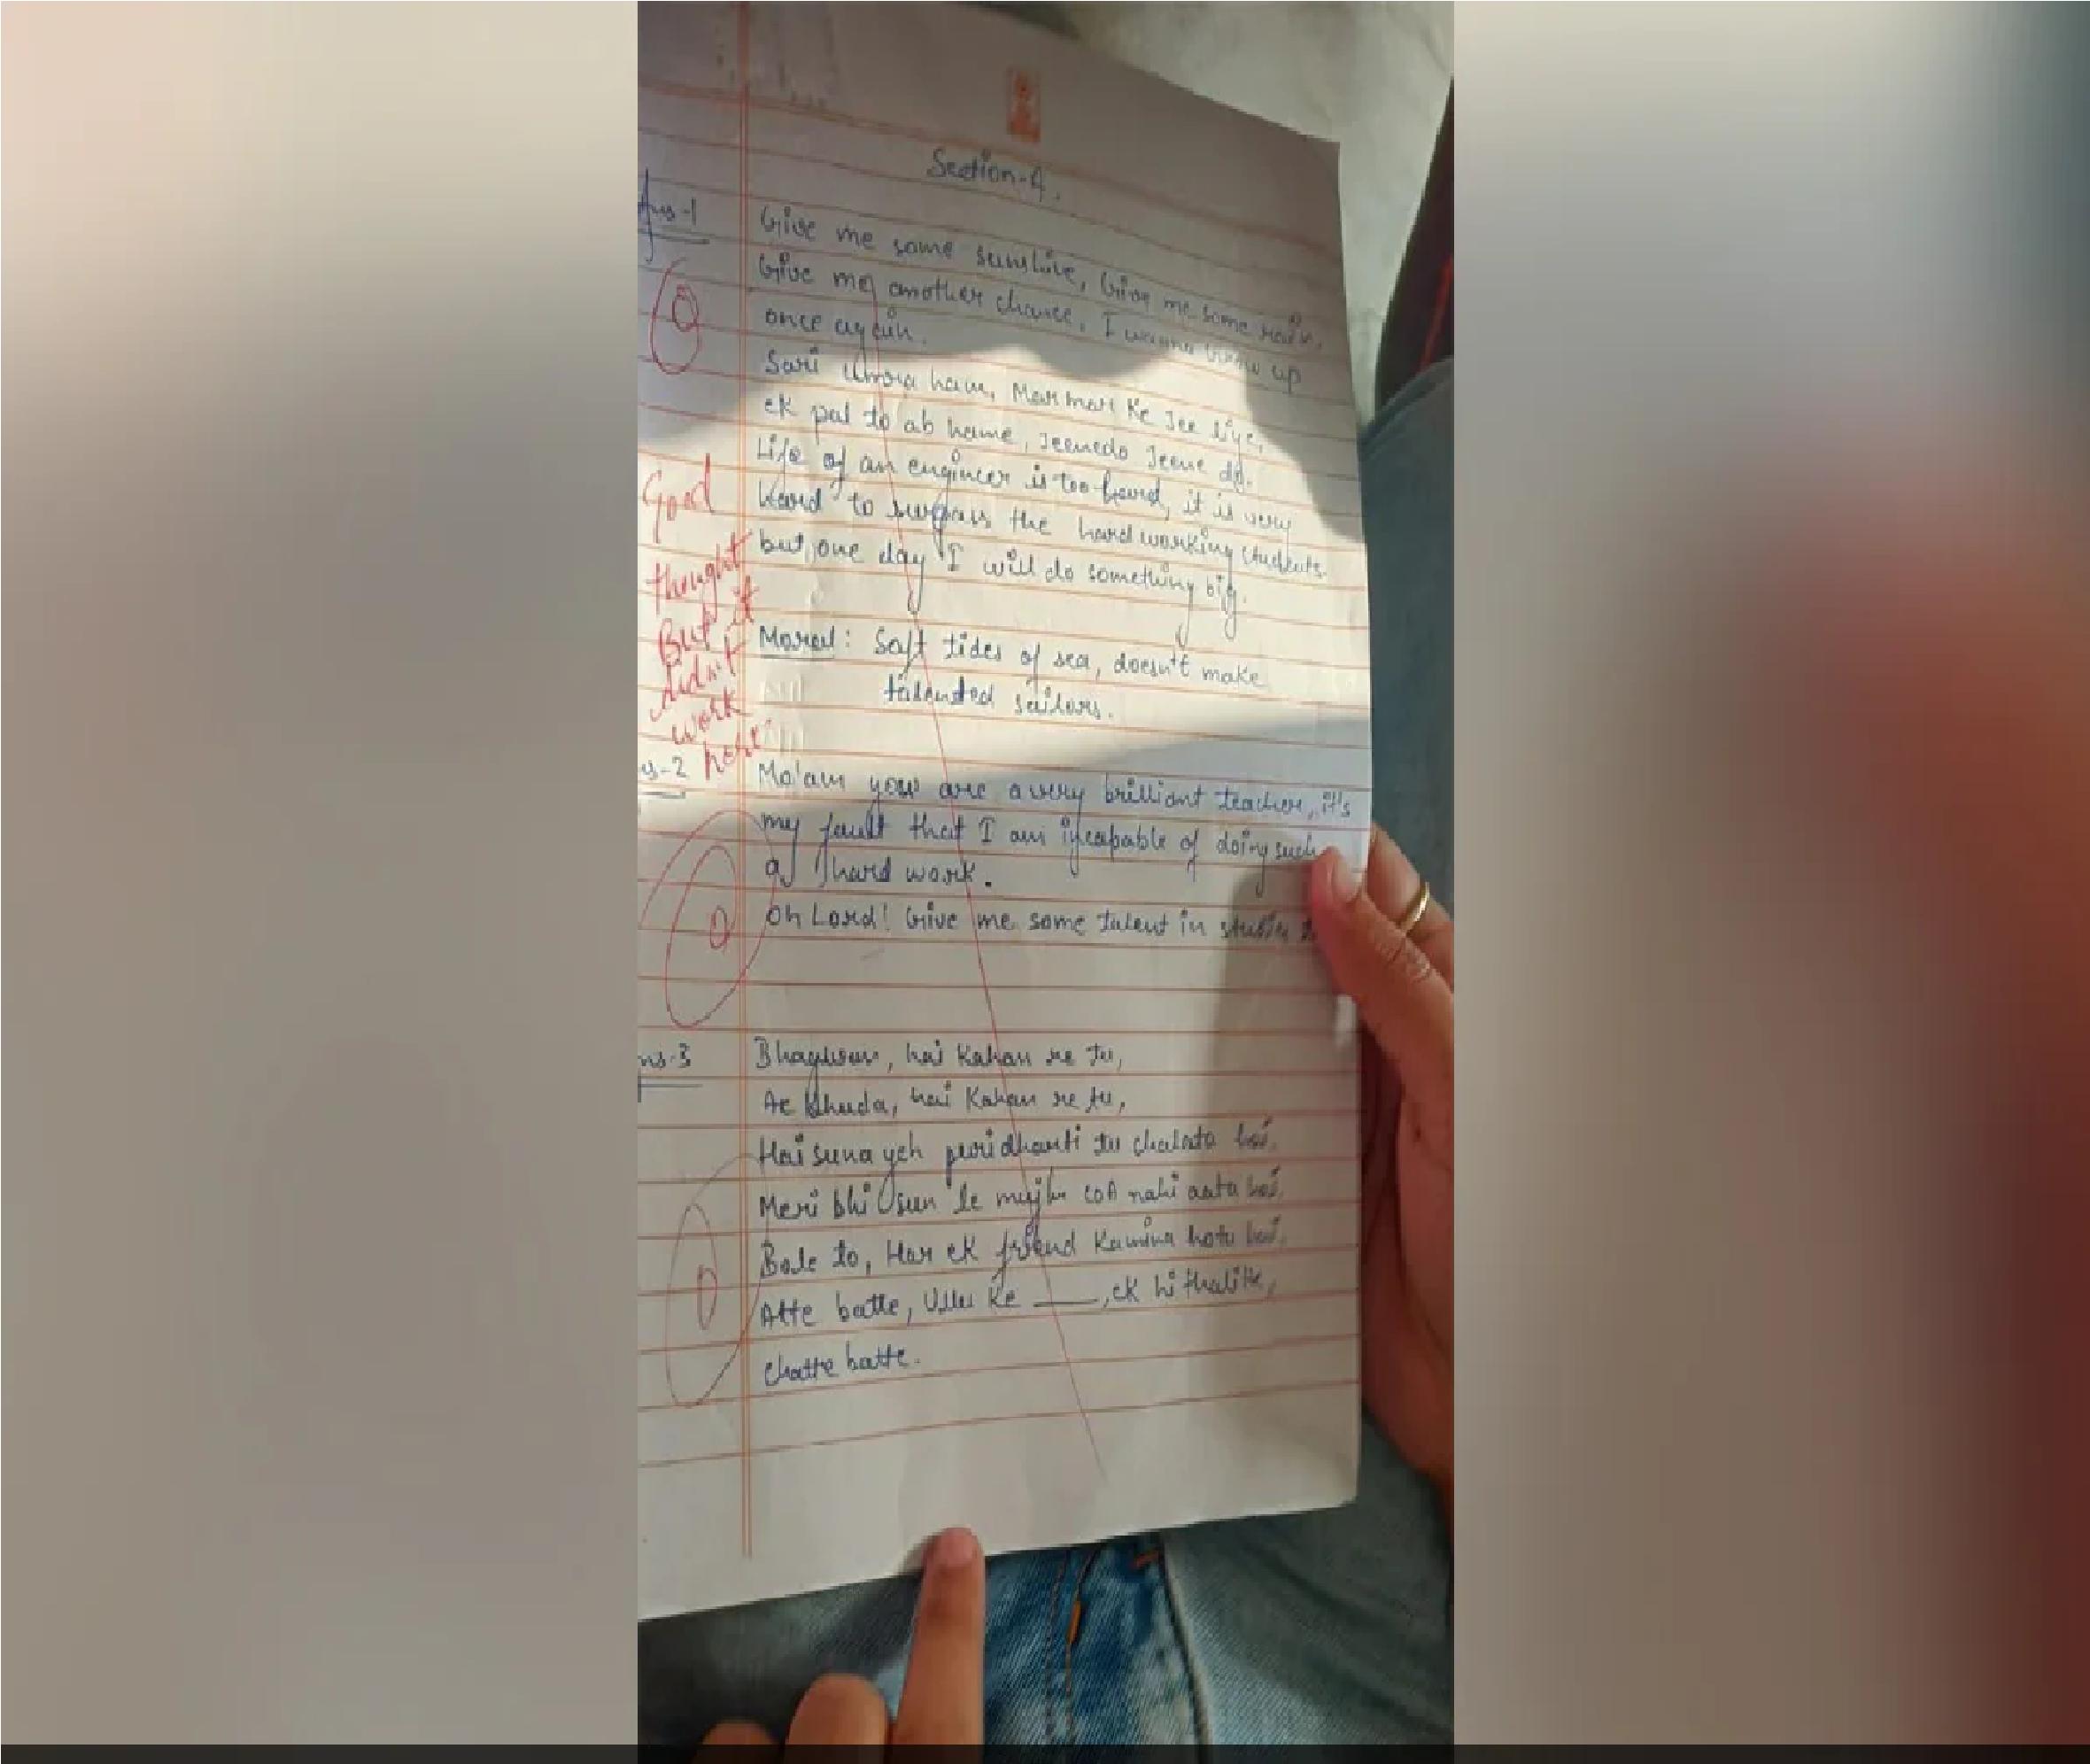 Section-A.
Ans-1
Give me some sunshine, Give me some rain,
Give me another chance, I wanna Grow up
once again.
Sari Umra ham, Mar mar Ke Jee liye,
ek pal to ab hame, Jeenedo Jeene do.
Life of an engineer is too hard, it is very
hard to surpass the hardworking students.
but, one day I will do something big.
Moral: Soft tides of sea, doesn't make
talented sailors.
0
Good
thought
But it
didn't
work
here
ns-2
Ma'am you are a very brilliant teacher, it's
my fault that I am incapable of doing such
a hard work.
Oh Lord! Give me some talent in
0
ns-3
Bhagwan, hai Kahan re tu,
Ae Khuda, hai Kahan re tu,
Hai suna yeh puri dharti tu chalata hai,
Meri bhi sun le mujhe COA nahi aata hai,
Bole to, Har ek friend Kamina hota hai,
Atte batte, Ullu Ke ____, ek hi thali Ke,
Chatte batte.
0